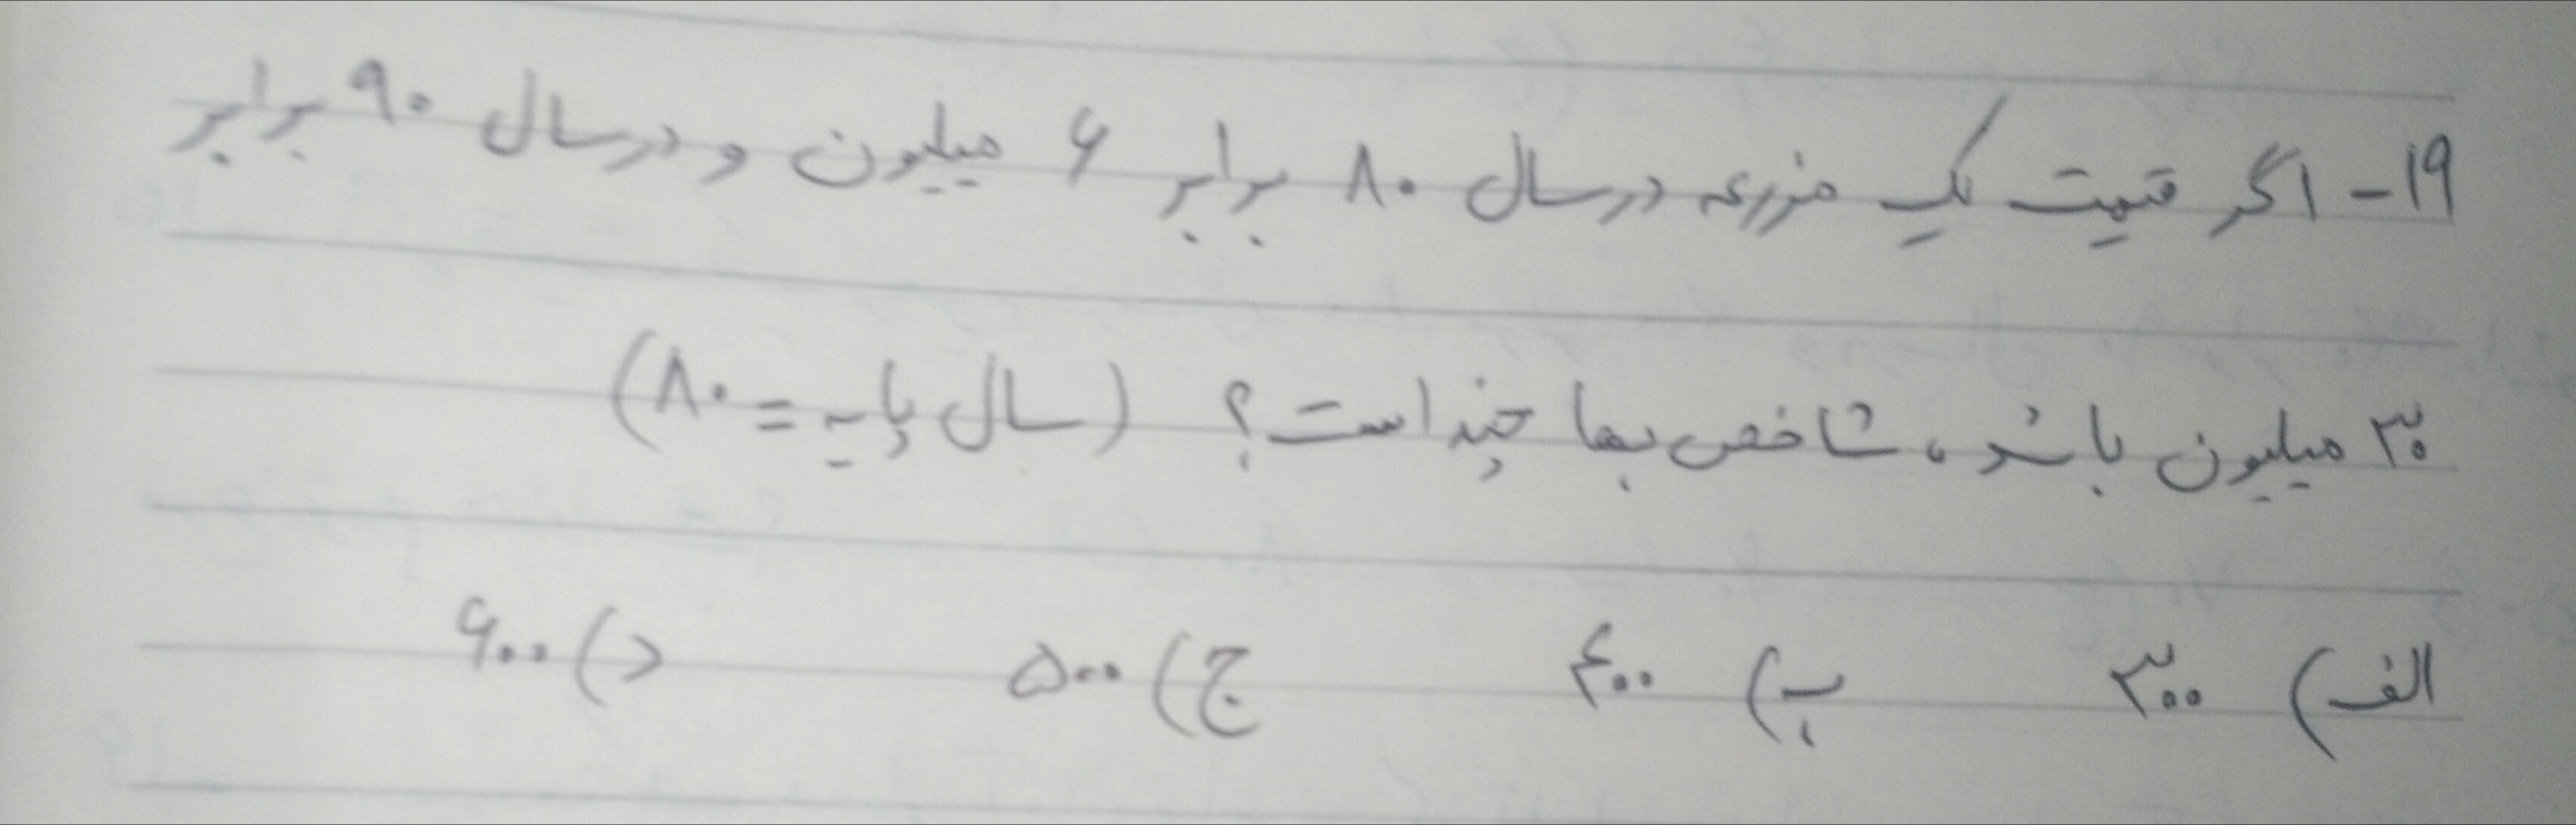 ۱۹- اگر قیمت یک مزرعه در سال ۸۰ برابر ۶ میلیون و در سال ۹۰ برابر
۳۰ میلیون باشد، شاخص بها چند است؟ (سال پایه = ۸۰)
الف) ۳۰۰ ب) ۴۰۰ ج) ۵۰۰ د) ۶۰۰